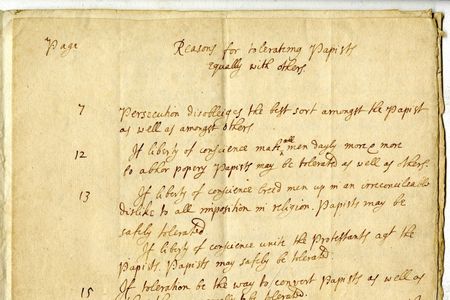 Page
Reasons for tolerating Papists
equally with others.
7 Persecution disobleiges the best sort amongst the Papist
as well as amongst others
12 If liberty of conscience make all men dayly more & more
to abhor popery Papists may be tolerated as well as others.
13 If liberty of conscience breed men up in an irreconcileable
dislike to all imposition in religion. Papists may be
safely tolerated
If liberty of conscience unite the Protestants agt the
Papists. Papists may safely be tolerated.
15 If toleration be the way to convert Papists as well as
be tolerated.